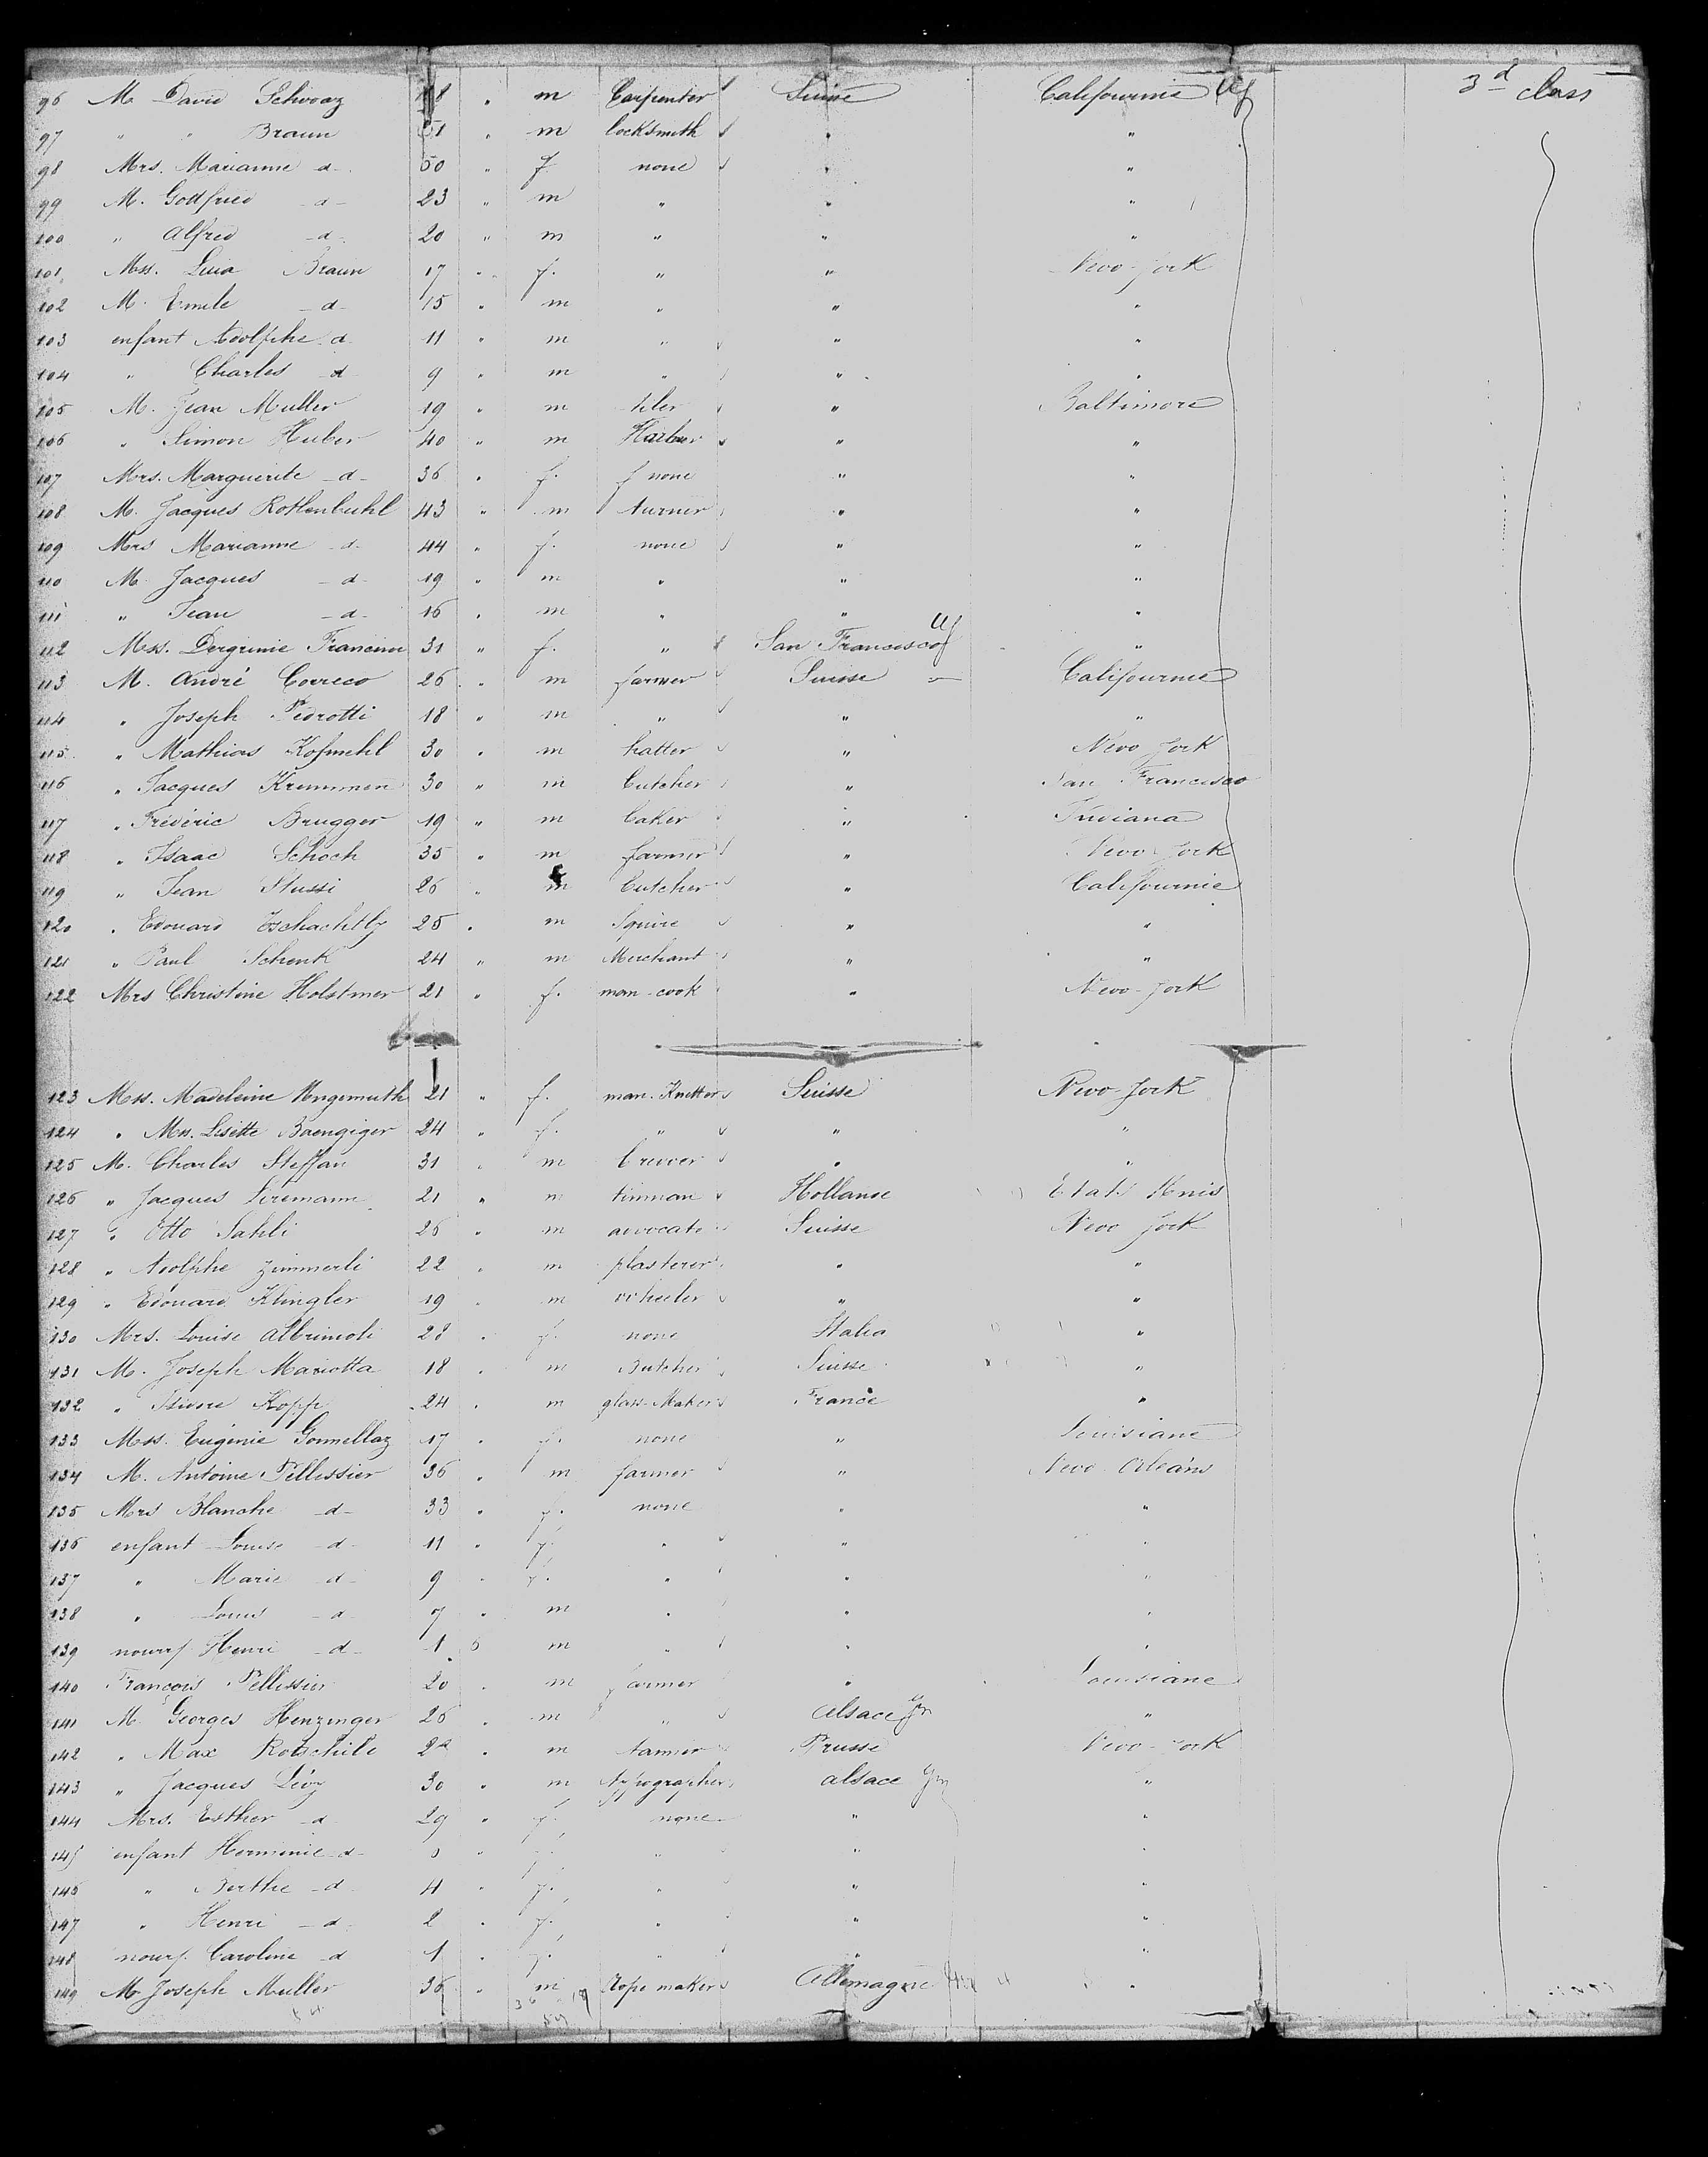 3d Class
96 M David Schwaz 18 " m Carpenter Suisse Californie
97 " " Braun 51 " m locksmith " "
98 Mrs. Marianne d- 50 " f none " "
99 M. Godfried -d- 23 " m " " "
100 " Alfred -d- 20 " m " " "
101 Mss. Luia Braun 17 " f. " " New-York
102 M. Emile -d- 15 " m " " "
103 enfant Adolphe d 11 " m " " "
104 " Charles d 9 " m " " "
105 M. Jean Muller 19 " m tiler " Baltimore
106 " Simon Huber 40 " m " "
107 Mrs. Marguerite -d- 36 " f. none " "
108 M. Jacques Rothenbuhl 43 " m turner " "
109 Mrs Marianne -d- 44 " f. none " "
110 M. Jacques -d- 19 " m " " "
111 " Jean -d- 16 " m " " "
112 Mss. Dergrinie Francino 31 " f. " San Francisco "
113 M. André Correco 26 " m farmer Suisse Californie
114 " Joseph Pedrotti 18 " m " " "
115 " Mathias Kofmehl 30 " m hatter " New York
116 " Jacques Krummen 30 " m butcher " San Francisco
117 " Fréderic Brugger 19 " m baker " Indiana
118 " Isaac Schoch 35 " m farmer " New York
119 " Jean Stussi 26 " m butcher " Californie
120 " Edouard Zschachtly 25 " m Squire " "
121 " Paul Schenk 24 " m Merchant " "
122 Mrs Christine Holstmer 21 " f. man-cook " New-York
123 Mss. Madeleine Ungemuth 21 " f. man-Knitter Suisse New-York
124 " Mss. Lisette Baengiger 24 " f. " " "
125 M. Charles Steffan 31 " m brewer " "
126 " Jacques Liremann 21 " m tinman Hollande Etats Unis
127 " Otto Sahli 26 " m advocate Suisse New York
128 " Adolphe Zimmerli 22 " m plasterer " "
129 " Edouard Klingler 19 " m wheeler " "
130 Mrs. Louise Albrimoli 28 " f. none Italia "
131 M. Joseph Mariotta 18 " m Butcher Suisse "
132 " Isidore Kopp 24 " m glass-Maker France "
133 Mss. Eugenie Gonnellaz 17 " f. none " Louisiane
134 M. Antoine Pellissier 36 " m farmer " New Orleans
135 Mrs Blanche -d- 33 " f. none " "
136 enfant Louise -d- 11 " f. " " "
137 " Marie -d- 9 " f. " " "
138 " Louis -d- 7 " m " " "
139 nourr/ Henri -d- 1 6 m " " "
140 François Pellissier 20 " m farmer " Louisiane
141 M. Georges Henzinger 26 " m " Alsace "
142 " Max Rotschild " m tanner Prusse New-York
143 " Jacques Lévy 30 " m typographer Alsace "
144 Mrs. Esther -d- 29 " f. none " "
145 enfant Herminie -d- " f. " " "
146 " Berthe -d- 4 " f. " " "
147 " Henri -d- 2 " f. " " "
148 nour/. Caroline -d 1 " f. " " "
149 M. Joseph Muller 36 " m Rope maker Allemagne "